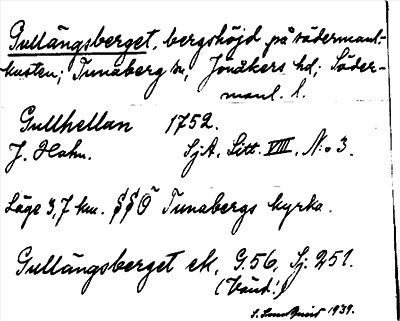 Gullängsberget, bergshöjd på södermanl.-
kusten; Tunaberg sn, Jönåkers hd; Söder-
manl. l.
Gullhellan 1752.
J. Hahn. SjA. Litt. VIII. N:o 3.
Läge 3,7 km. SSO Tunabergs kyrka.
Gullängsberget ek, G. 56, Sj. 251.
1939.